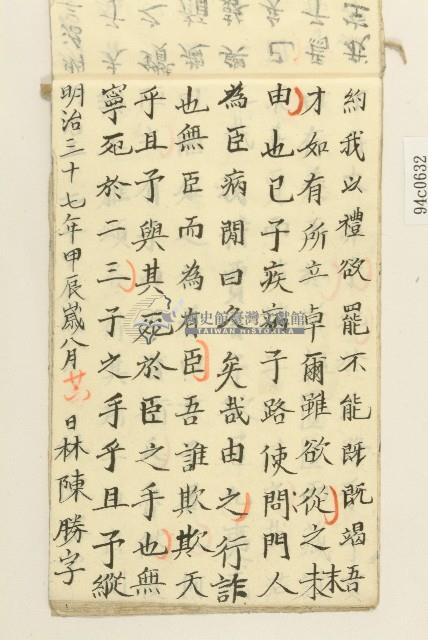 約我以禮欲罷不能既既竭吾
才如有所立卓爾雖欲從之未末
由也已子疾病子路使問門人
為臣病閒曰久矣哉由之行詐
也無臣而為有臣吾誰欺欺天
乎且予與其死於臣之手也無
寧死於二三子之手乎且予縱
明治三十七年甲辰歲八月廿六日林陳勝字
國史館臺灣文獻館
TAIWAN HISTORICA
94c0632